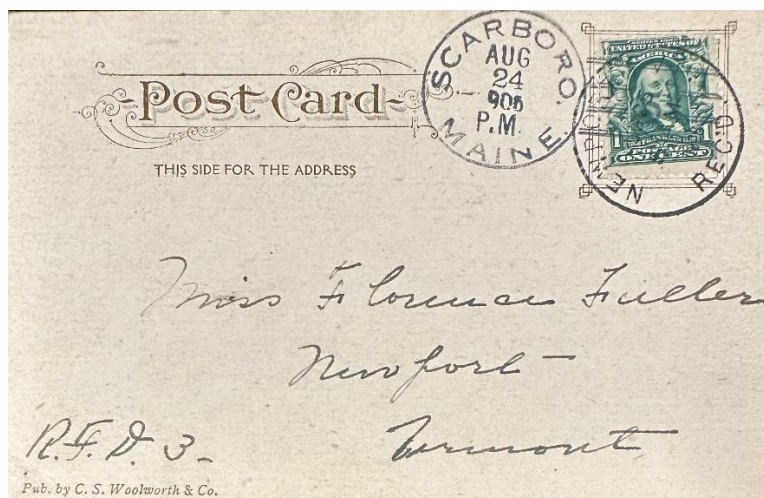 Post Card
THIS SIDE FOR THE ADDRESS
SCARBORO.
AUG
24
P.M.
MAINE.
REC'D
UNITED STATES
OF AMERICA
FRANKLIN
POSTAGE
ONE CENT
Miss Florence Fuller
Newport
Vermont
R.F.D. 3
Pub. by C. S. Woolworth & Co.